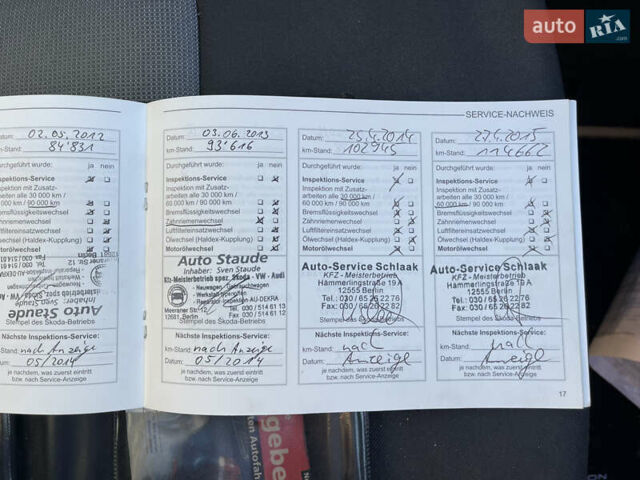 auto RIA.com
SERVICE-NACHWEIS
Datum: 02.05.2012
km-Stand: 84'831
Durchgeführt wurde: ja nein
Inspektions-Service
Inspektion mit Zusatz-
arbeiten alle 30 000 km /
60 000 km / 90 000 km
Bremsflüssigkeitswechsel
Zahnriemenwechsel
Luftfiltereinsatzwechsel
Ölwechsel (Haldex-Kupplung)
Motorölwechsel
Auto Staude
Inhaber: Sven Staude
Stempel des Skoda-Betriebs
Nächste Inspektions-Service:
km-Stand: nach Anzeige
05/2014
je nachdem, was zuerst eintritt
bzw. nach Service-Anzeige
Datum: 03.06.2013
km-Stand: 93'616
Durchgeführt wurde: ja nein
Inspektions-Service
Inspektion mit Zusatz-
arbeiten alle 30 000 km /
60 000 km / 90 000 km
Bremsflüssigkeitswechsel
Zahnriemenwechsel
Luftfiltereinsatzwechsel
Ölwechsel (Haldex-Kupplung)
Motorölwechsel
Auto Staude
Inhaber: Sven Staude
Kfz-Meisterbetrieb spez. Skoda - VW - Audi
Meeraner Str. 12
12681 Berlin
Tel. 030 / 514 61 13
Fax 030 / 514 61 12
Stempel des Skoda-Betriebs
Nächste Inspektions-Service:
km-Stand: nach Anzeige
Datum: 05/2014
je nachdem, was zuerst eintritt
bzw. nach Service-Anzeige
Datum: 25.4.2014
km-Stand: 102945
Durchgeführt wurde: ja nein
Inspektions-Service
Inspektion mit Zusatz-
arbeiten alle 30 000 km /
60 000 km / 90 000 km
Bremsflüssigkeitswechsel
Zahnriemenwechsel
Luftfiltereinsatzwechsel
Ölwechsel (Haldex-Kupplung)
Motorölwechsel
Auto-Service Schlaak
KFZ - Meisterbetrieb
Hämmerlingstraße 19 A
12555 Berlin
Tel.: 030 / 65 26 22 76
Fax: 030 / 65 26 22 82
Stempel des Skoda-Betriebs
Nächste Inspektions-Service:
km-Stand: nach
Datum: Anzeige
je nachdem, was zuerst eintritt
bzw. nach Service-Anzeige
Datum: 27.4.2015
km-Stand: 114662
Durchgeführt wurde: ja nein
Inspektions-Service
Inspektion mit Zusatz-
arbeiten alle 30 000 km /
60 000 km / 90 000 km
Bremsflüssigkeitswechsel
Zahnriemenwechsel
Luftfiltereinsatzwechsel
Ölwechsel (Haldex-Kupplung)
Motorölwechsel
Auto-Service Schlaak
KFZ - Meisterbetrieb
Hämmerlingstraße 19 A
12555 Berlin
Tel.: 030 / 65 26 22 76
Fax: 030 / 65 26 22 82
Stempel des Skoda-Betriebs
Nächste Inspektions-Service:
km-Stand: nach
Datum: Anzeige
je nachdem, was zuerst eintritt
bzw. nach Service-Anzeige
17